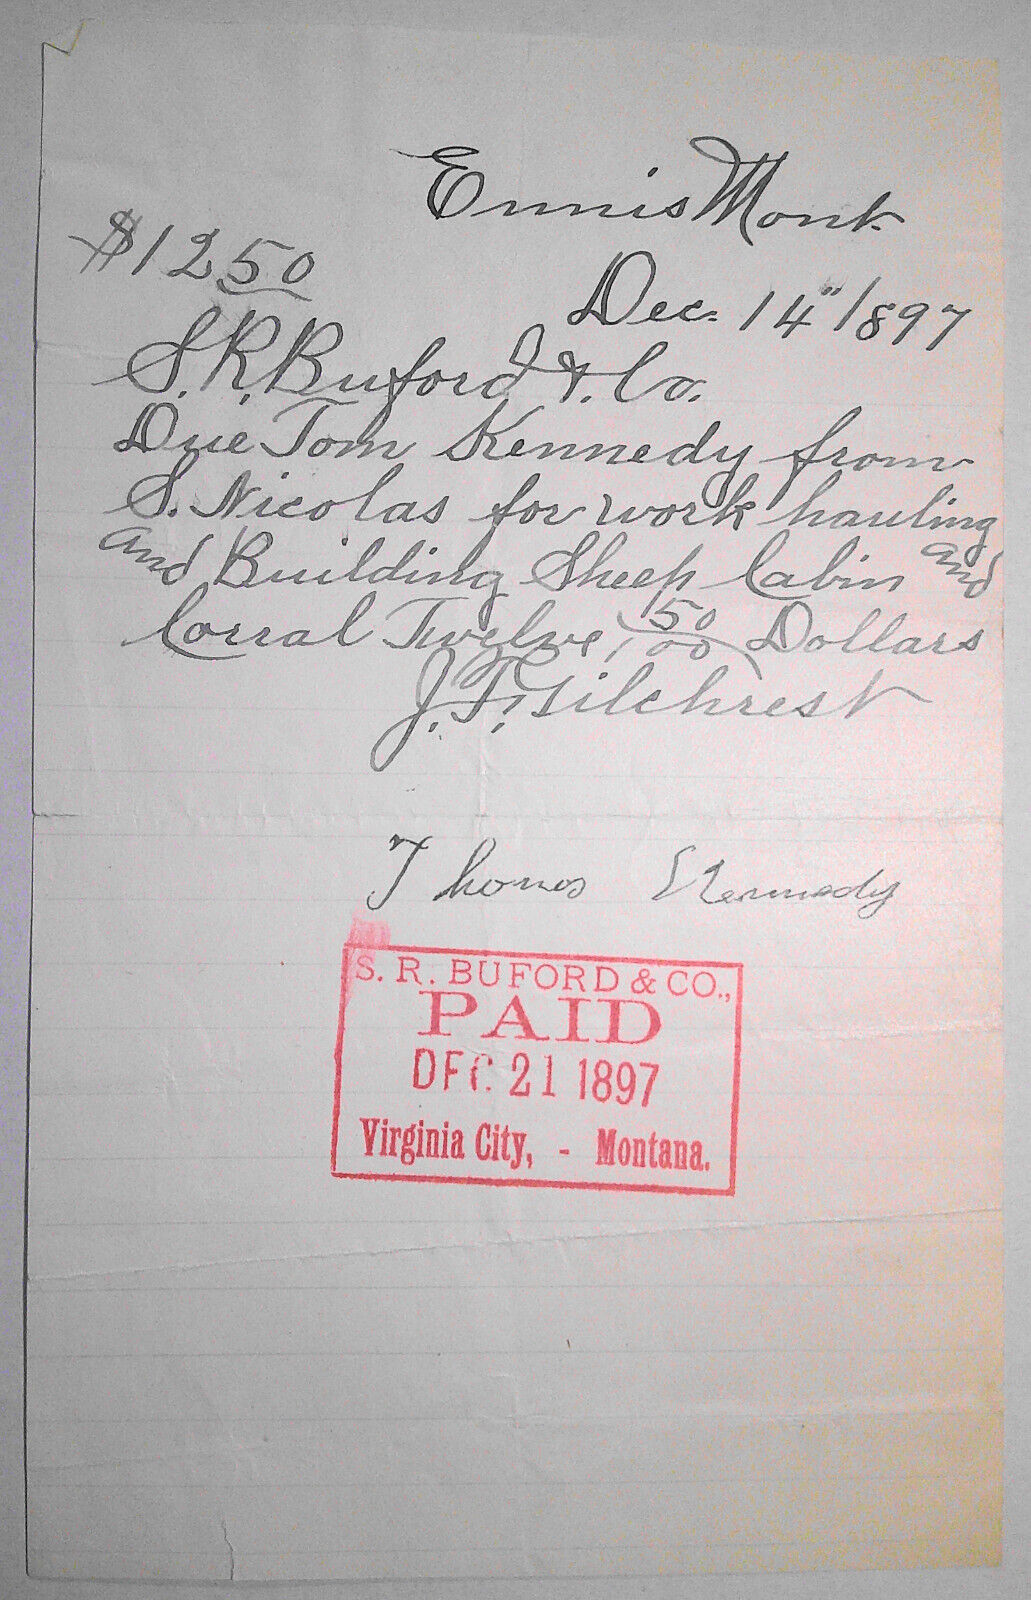 Ennis Mont.
$12 50
Dec. 14" 1897
S. R. Buford & Co.
Due Tom Kennedy from
S. Nicolas for work hauling
and Building Sheep Cabin and
Corral Twelve, 50/100 Dollars
J. F. Gilchrest
Thomas Kennedy
S. R. BUFORD & CO.,
PAID
DEC 21 1897
Virginia City, - Montana.